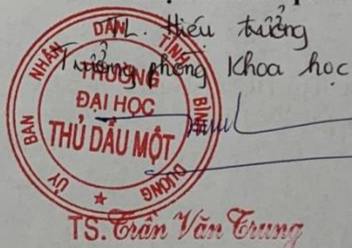 TL. Hiệu trưởng
Trưởng phòng Khoa học
ỦY BAN NHÂN DÂN TỈNH BÌNH DƯƠNG
TRƯỜNG
ĐẠI HỌC
THỦ DẦU MỘT
TS. Trần Văn Trung